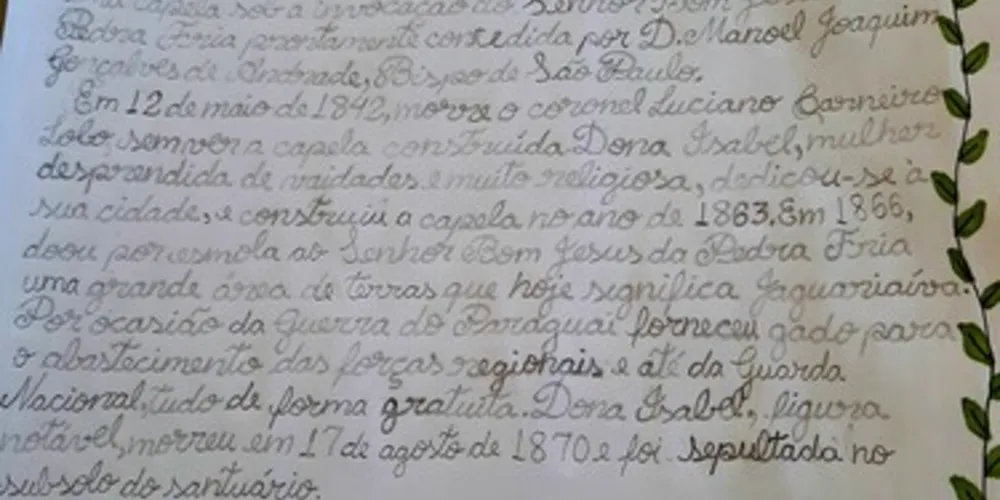 capela sob a invocação do Senhor Bom
Pedra Fria prontamente concedida por D. Manoel Joaquim
Gonçalves de Andrade, Bispo de São Paulo.
Em 12 de maio de 1842, morre o coronel Luciano Carneiro
Lobo sem ver a capela construída. Dona Isabel, mulher
desprendida de vaidades e muito religiosa, dedicou-se à
sua cidade, e construiu a capela no ano de 1863. Em 1866,
doou por esmola ao Senhor Bom Jesus da Pedra Fria
uma grande área de terras que hoje significa Jaguariaíva.
Por ocasião da Guerra do Paraguai forneceu gado para
o abastecimento das forças regionais e até da Guarda
Nacional, tudo de forma gratuita. Dona Isabel, figura
notável, morreu em 17 de agosto de 1870 e foi sepultada no
subsolo do santuário.